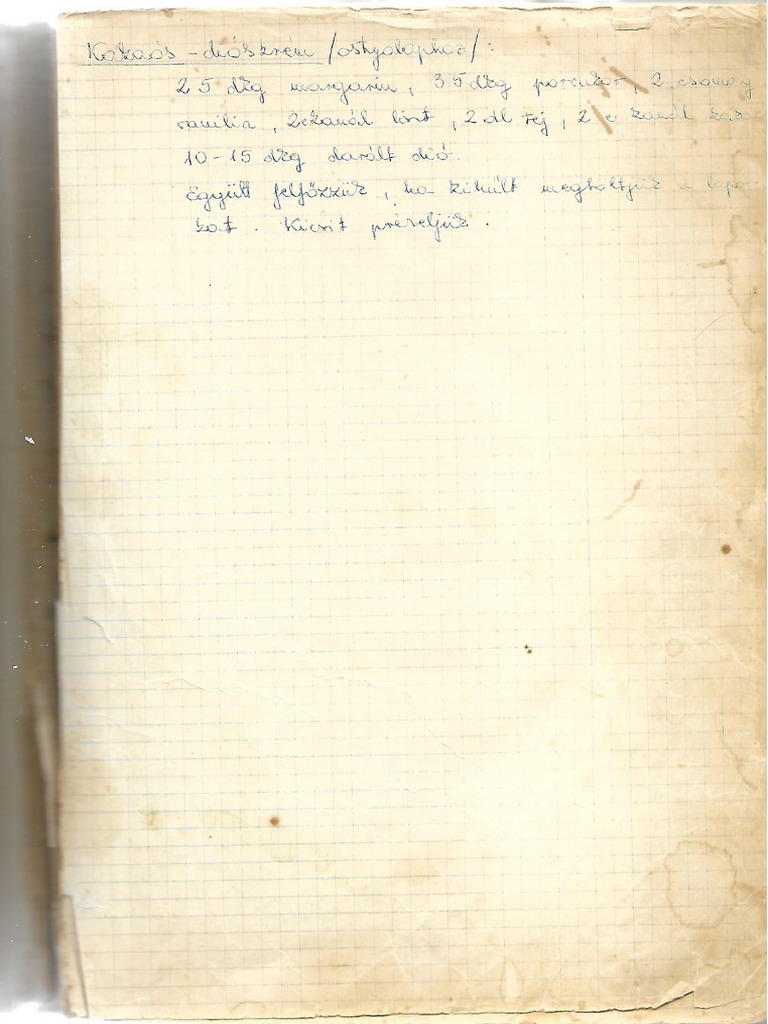 Kakaós - dióskrém /ostyalaphoz/:
25 dkg margarin, 35 dkg porcukor, 2 csomag
vanilia, 2 ekanál liszt, 2 dl tej, 2 e kanál kakaó
10-15 dkg darált dió.
Együtt felfőzzük, ha kihült megtöltjük a lapo
kat. Kicsit préseljük.